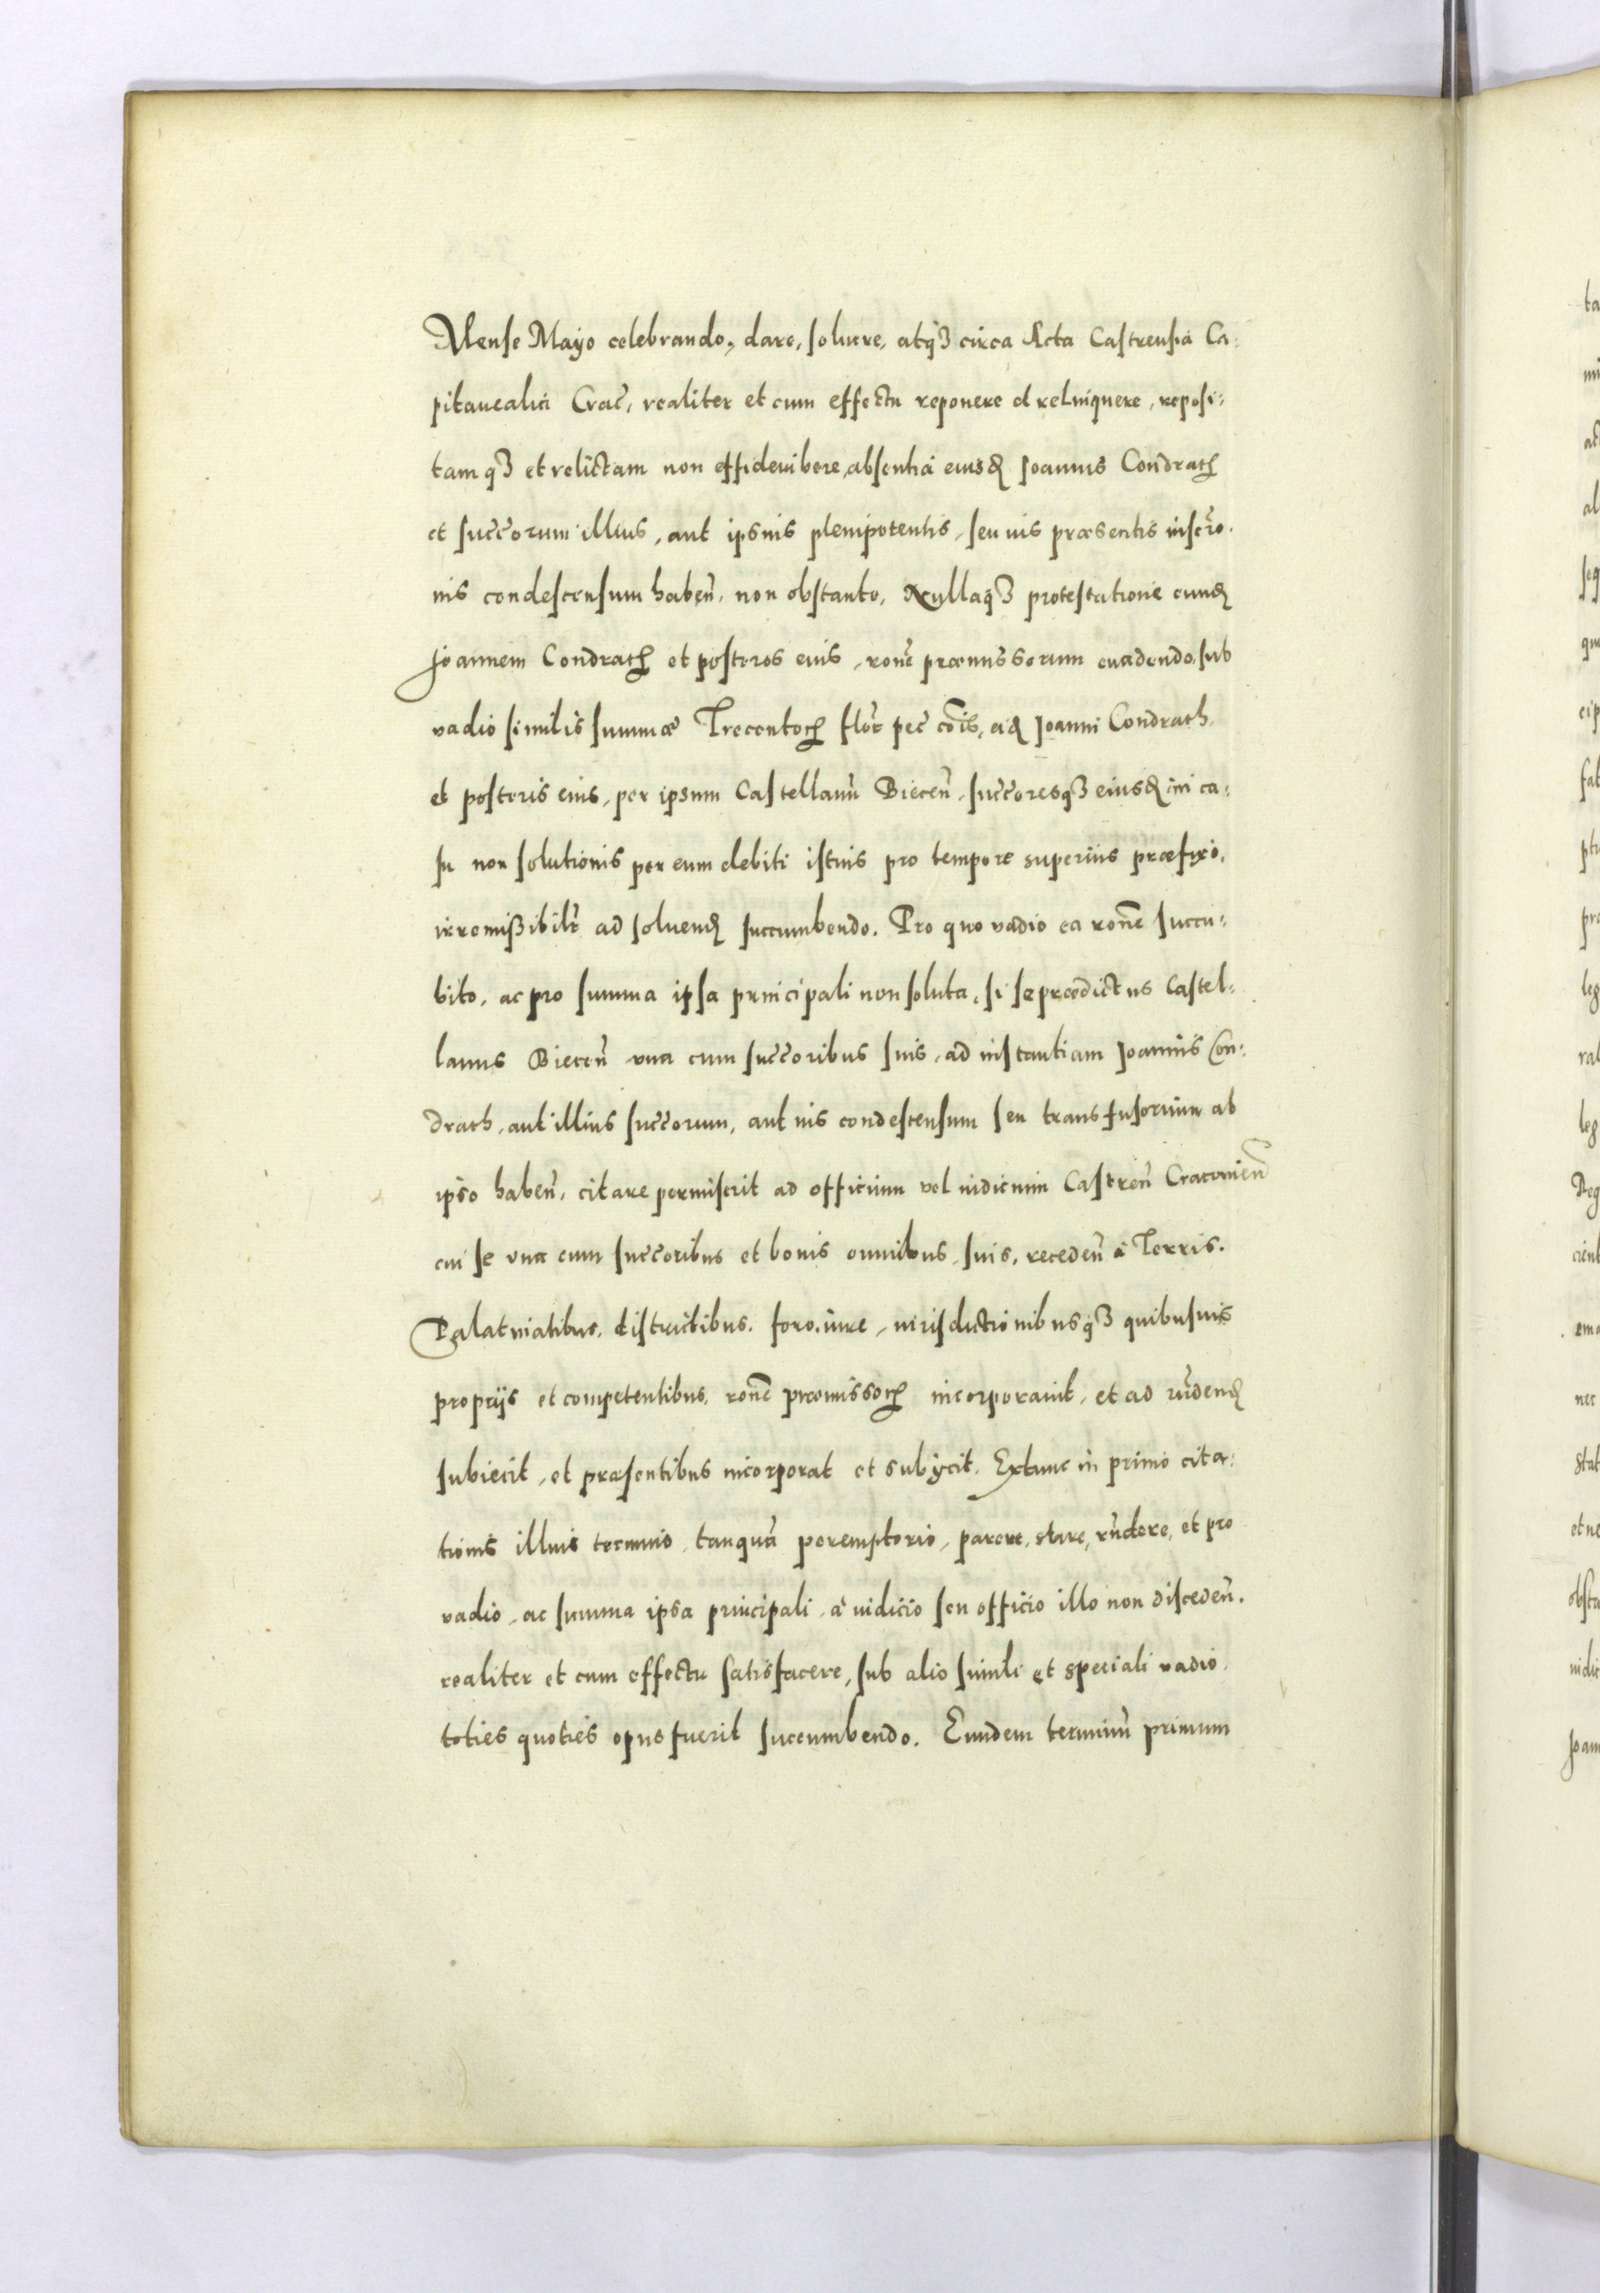 Mense Mayo celebrando, dare, soluere, atq3 circa Acta Castrensia Ca:
pitanealia Crac, realiter et cum effectu reponere et relinquere, reposi:
tamq3 et relictam non effideiubere, absentia eiusd Joannis Condrath
et succorum illius, aut ipsius plenipotentis, seu ius praesentis inscro:
nis condescensum haben, non obstante, Nullaq3 protestatione eund
Joannem Condrath et posteros eius, rone praemissorum euadendo, sub
vadio similis summae Trecentor flor pec cois, eid Joanni Condrath,
et posteris eius, per ipsum Castellanu Biecen, succoresq3 eiusd in ca:
su non solutionis per eum debiti istius pro tempore superius praefixo,
irremißibilr ad soluend succumbendo. Pro quo vadio ea rone succu:
bito, ac pro summa ipsa principali non soluta, si se praedictus Castel:
lanus Biecen vna cum succoribus suis, ad instantiam Joannis Con:
drath, aut illius succorum, aut ius condescensum seu transfusorium ab
ipso haben, citare permiserit ad officium vel iudicium Castren Cracouien
cui se vna cum succoribus et bonis omnibus suis, receden à Terris.
Palatinatibus, districtibus, foro, iure, iurisdictionibusq3 quibusuis
proprijs et competentibus, rone praemissor incorporauit, et ad rndend
subiecit, et praesentibus incorporat et subijcit. Extunc in primo cita:
tionis illius termino, tanqua peremptorio, parere, stare, rndere, et pro
vadio, ac summa ipsa principali, à iudicio seu officio illo non disceden.
realiter et cum effectu satisfacere, sub alio simili et speciali vadio,
toties quoties opus fuerit succumbendo. Eundem terminu primum